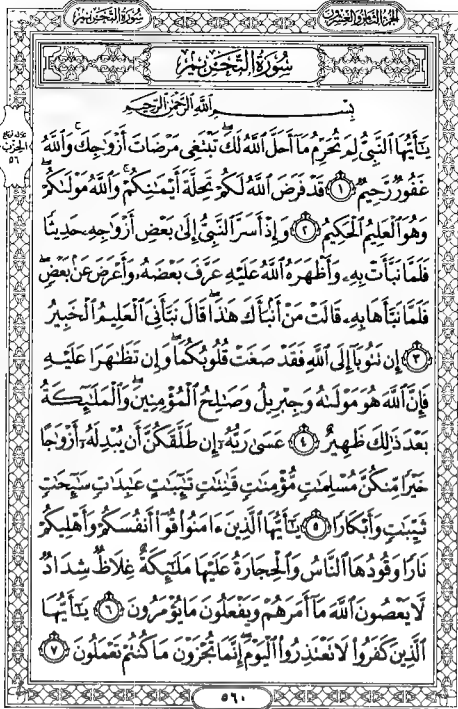 سُورَةُ التَّحْرِيمِ
الجُزْءُ الثَّامِنُ وَالعِشْرُونَ
سُورَةُ التَّحْرِيمِ
بِسْمِ اللَّهِ الرَّحْمَٰنِ الرَّحِيمِ
يَٰٓأَيُّهَا ٱلنَّبِىُّ لِمَ تُحَرِّمُ مَآ أَحَلَّ ٱللَّهُ لَكَ ۖ تَبْتَغِى مَرْضَاتَ أَزْوَٰجِكَ ۚ وَٱللَّهُ
الحِزْب
٥٦
غَفُورٌ رَّحِيمٌ ١ قَدْ فَرَضَ ٱللَّهُ لَكُمْ تَحِلَّةَ أَيْمَٰنِكُمْ ۚ وَٱللَّهُ مَوْلَىٰكُمْ ۖ
وَهُوَ ٱلْعَلِيمُ ٱلْحَكِيمُ ٢ وَإِذْ أَسَرَّ ٱلنَّبِىُّ إِلَىٰ بَعْضِ أَزْوَٰجِهِۦ حَدِيثًا
فَلَمَّا نَبَّأَتْ بِهِۦ وَأَظْهَرَهُ ٱللَّهُ عَلَيْهِ عَرَّفَ بَعْضَهُۥ وَأَعْرَضَ عَنۢ بَعْضٍ ۖ
فَلَمَّا نَبَّأَهَا بِهِۦ قَالَتْ مَنْ أَنۢبَأَكَ هَٰذَا ۖ قَالَ نَبَّأَنِىَ ٱلْعَلِيمُ ٱلْخَبِيرُ
٣ إِن تَتُوبَآ إِلَى ٱللَّهِ فَقَدْ صَغَتْ قُلُوبُكُمَا ۖ وَإِن تَظَٰهَرَا عَلَيْهِ
فَإِنَّ ٱللَّهَ هُوَ مَوْلَىٰهُ وَجِبْرِيلُ وَصَٰلِحُ ٱلْمُؤْمِنِينَ ۖ وَٱلْمَلَٰٓئِكَةُ
بَعْدَ ذَٰلِكَ ظَهِيرٌ ٤ عَسَىٰ رَبُّهُۥٓ إِن طَلَّقَكُنَّ أَن يُبْدِلَهُۥٓ أَزْوَٰجًا
خَيْرًا مِّنكُنَّ مُسْلِمَٰتٍ مُّؤْمِنَٰتٍ قَٰنِتَٰتٍ تَٰٓئِبَٰتٍ عَٰبِدَٰتٍ سَٰٓئِحَٰتٍ
ثَيِّبَٰتٍ وَأَبْكَارًا ٥ يَٰٓأَيُّهَا ٱلَّذِينَ ءَامَنُوا۟ قُوٓا۟ أَنفُسَكُمْ وَأَهْلِيكُمْ
نَارًا وَقُودُهَا ٱلنَّاسُ وَٱلْحِجَارَةُ عَلَيْهَا مَلَٰٓئِكَةٌ غِلَاظٌ شِدَادٌ
لَّا يَعْصُونَ ٱللَّهَ مَآ أَمَرَهُمْ وَيَفْعَلُونَ مَا يُؤْمَرُونَ ٦ يَٰٓأَيُّهَا
ٱلَّذِينَ كَفَرُوا۟ لَا تَعْتَذِرُوا۟ ٱلْيَوْمَ ۖ إِنَّمَا تُجْزَوْنَ مَا كُنتُمْ تَعْمَلُونَ ٧
٥٦٠